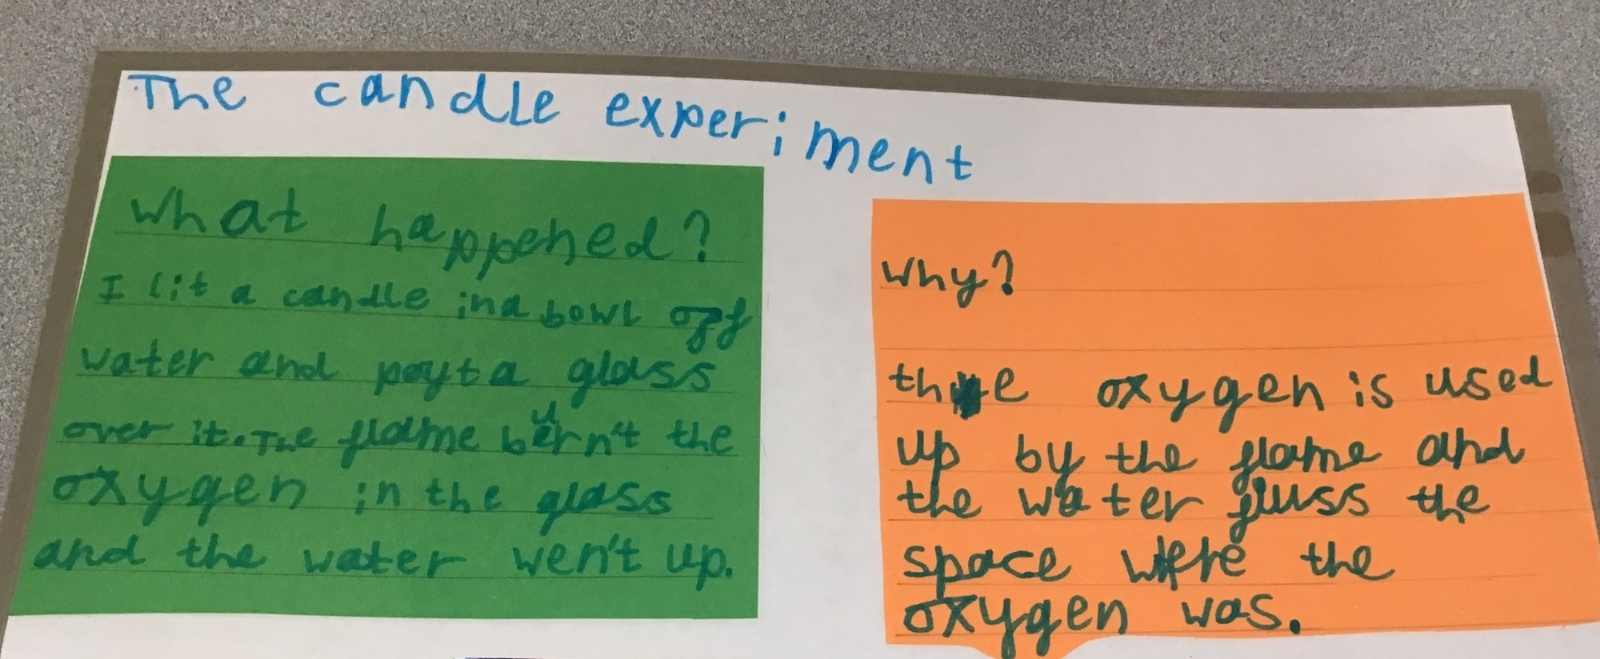 The candle experiment
What happened?
I lit a candle ina bowl off
water and poyt a glass
over it. The flame burn't the
oxygen in the glass
and the water wen't up.
Why?
the oxygen is used
up by the flame and
the water fluss the
space where the
oxygen was.